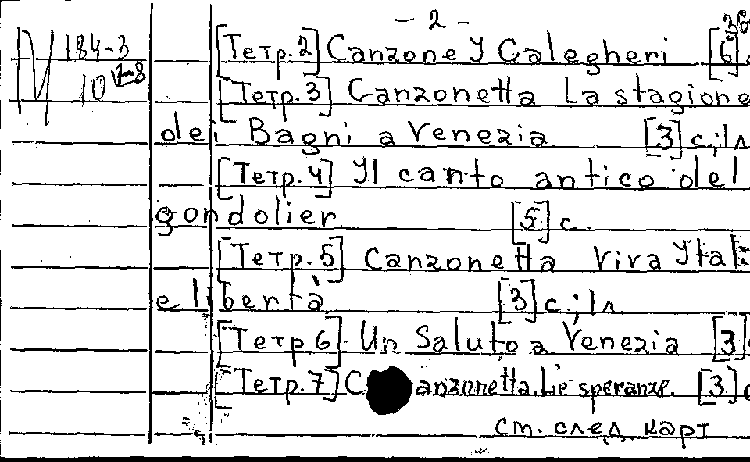 - 2 -
М 184-3 [Тетр.2] Canzone Y Calegheri [6]
10 [Тетр.3] Canzonetta La stagione
dei Bagni a Venezia [3] с; 1л
[Тетр.4] Yl canto antico del
gondolier [5] с.
[Тетр.5] Canzonetta Viva Ytal
e libertà [3] с; 1л
[Тетр.6] Un Saluto a Venezia [3]
[Тетр.7] Canzonetta. Le speranze. [3] с
см. след. карт